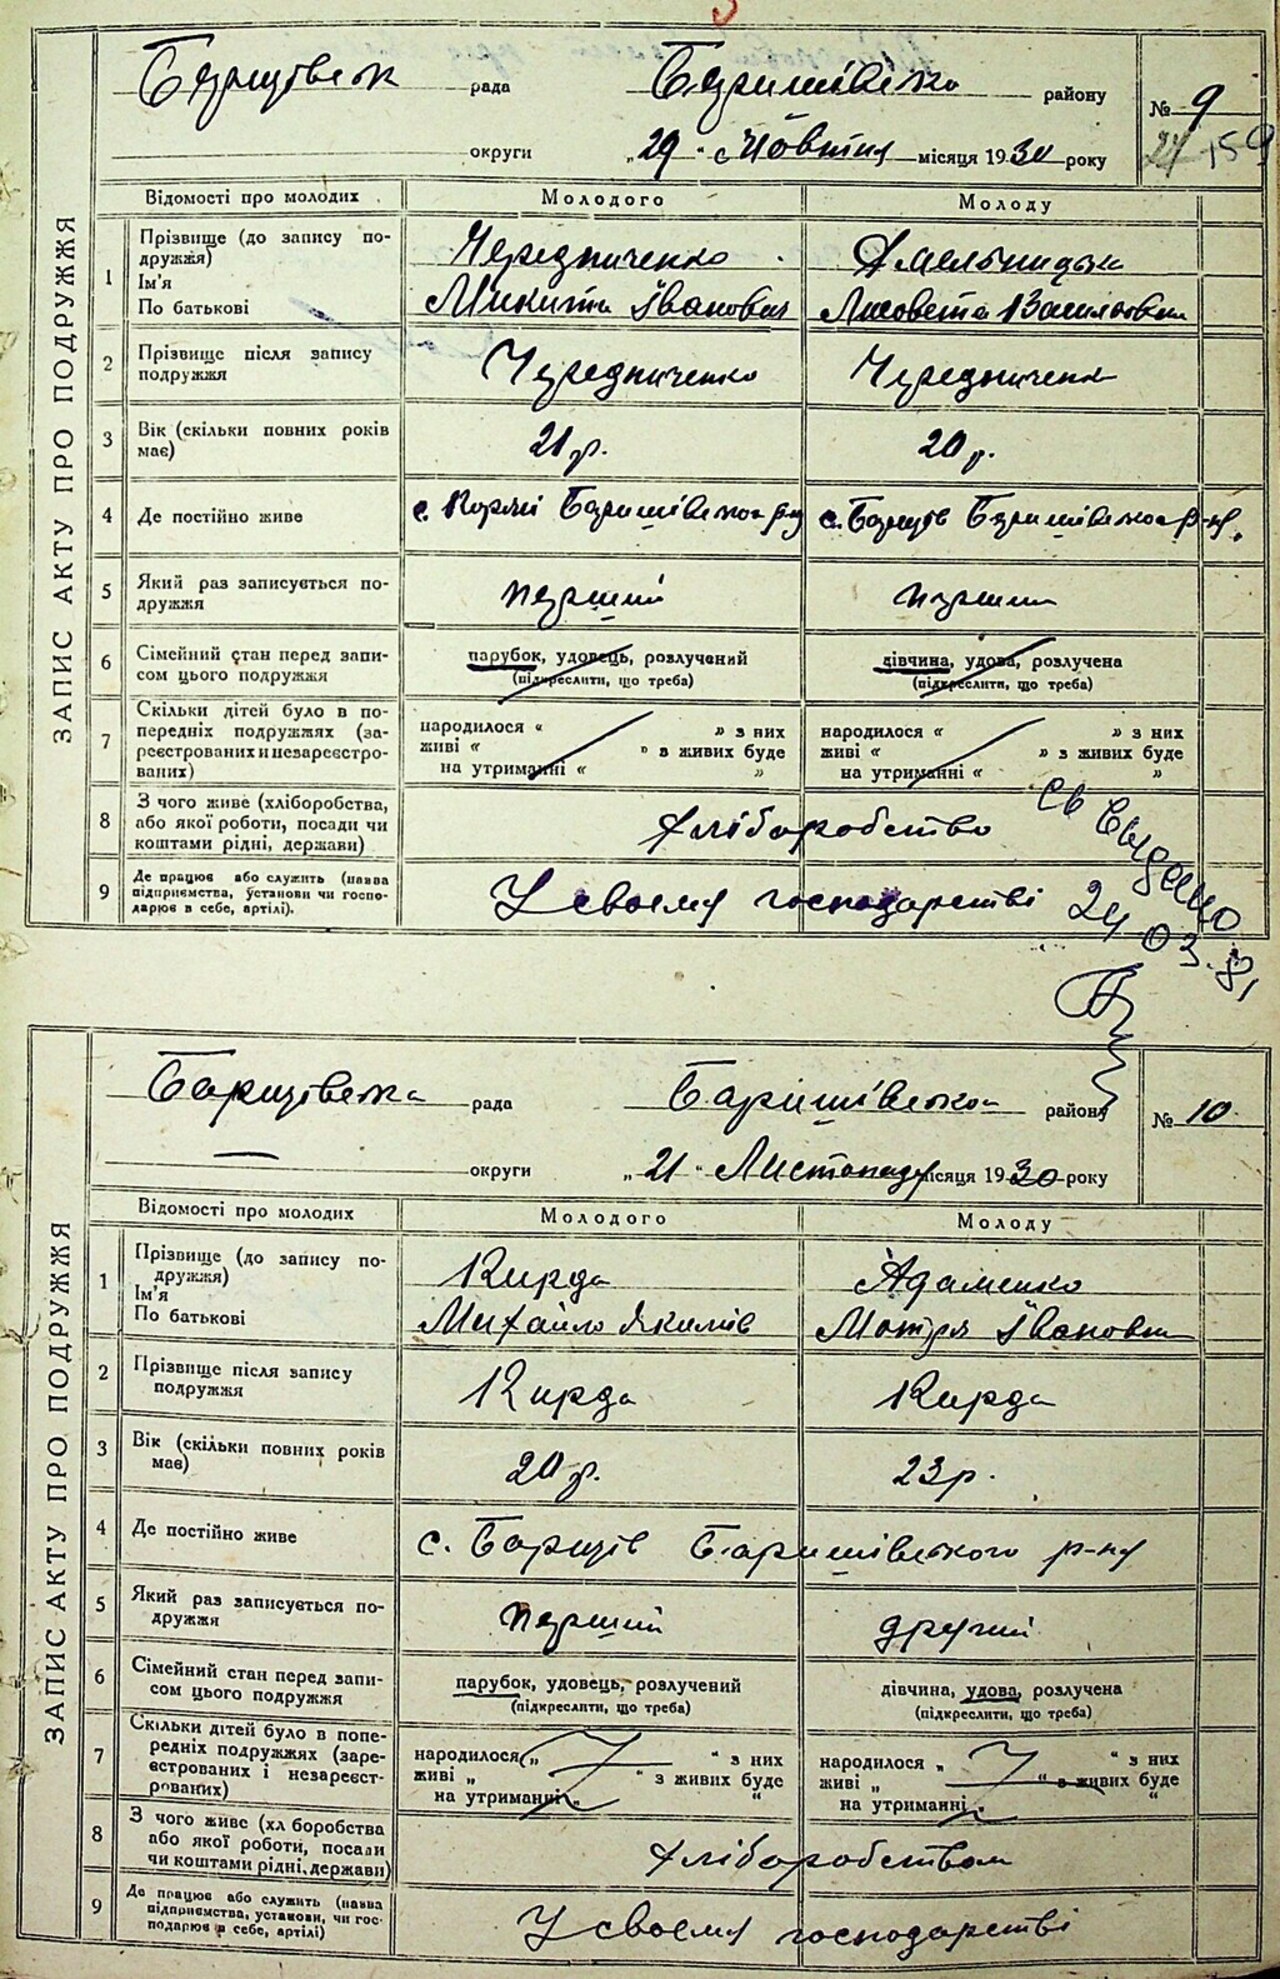 ЗАПИС АКТУ ПРО ПОДРУЖЖЯ
Борщівська рада Баришівсько району № 9
округи „29“ Жовтня місяця 1930 року 159
Відомості про молодих Молодого Молоду
1 Прізвище (до запису по-
дружжя)
Ім'я
По батькові
Чередниченко
Микита Іванович
Омельницька
Лисовета Василовна
2 Прізвище після запису
подружжя
Чередниченко Чередниченк
3 Вік (скільки повних років
має)
21 р. 20 р.
4 Де постійно живе
с. Коржі Баришівсько р-ну с. Борщів Баришівсько р-ну.
5 Який раз записується по-
дружжя
перший перший
6 Сімейний стан перед запи-
сом цього подружжя
парубок, удовець, розлучений
(підкреслити, що треба)
дівчина, удова, розлучена
(підкреслити, що треба)
7 Скільки дітей було в по-
передніх подружжях (за-
реєстрованих и незареєстро-
ваних)
народилося « » з них
живі « » з живих буде
на утриманні « »
народилося « » з них
живі « » з живих буде
на утриманні « »
8 З чого живе (хліборобства,
або якої роботи, посади чи
коштами рідні, держави)
хліборобство
9 Де працює або служить (назва
підприємства, установи чи госпо-
дарює в себе, артілі).
У своєму господарстві
Св выдено
24.03.81
ЗАПИС АКТУ ПРО ПОДРУЖЖЯ
Борщівська рада Баришівсько району № 10
округи „21“ Листопаду місяця 1930 року
Відомості про молодих Молодого Молоду
1 Прізвище (до запису по-
дружжя)
Ім'я
По батькові
Кирда
Михайло Якимів
Адаменко
Мотря Івановна
2 Прізвище після запису
подружжя
Кирда Кирда
3 Вік (скільки повних років
має)
20 р. 23 р.
4 Де постійно живе
с. Борщів Баришівського р-ну
5 Який раз записується по-
дружжя
перший другий
6 Сімейний стан перед запи-
сом цього подружжя
парубок, удовець, розлучений
(підкреслити, що треба)
дівчина, удова, розлучена
(підкреслити, що треба)
7 Скільки дітей було в попе-
редніх подружжях (заре-
єстрованих і незареєст-
рованих)
народилося „ “ з них
живі „ “ з живих буде
на утриманні „ “
народилося „ “ з них
живі „ “ з живих буде
на утриманні „ “
8 З чого живе (хл боробства
або якої роботи, посади
чи коштами рідні, держави)
хліборобством
9 Де працює або служить (назва
підприємства, установи, чи гос-
подарює в себе, артілі)
У своєму господарстві